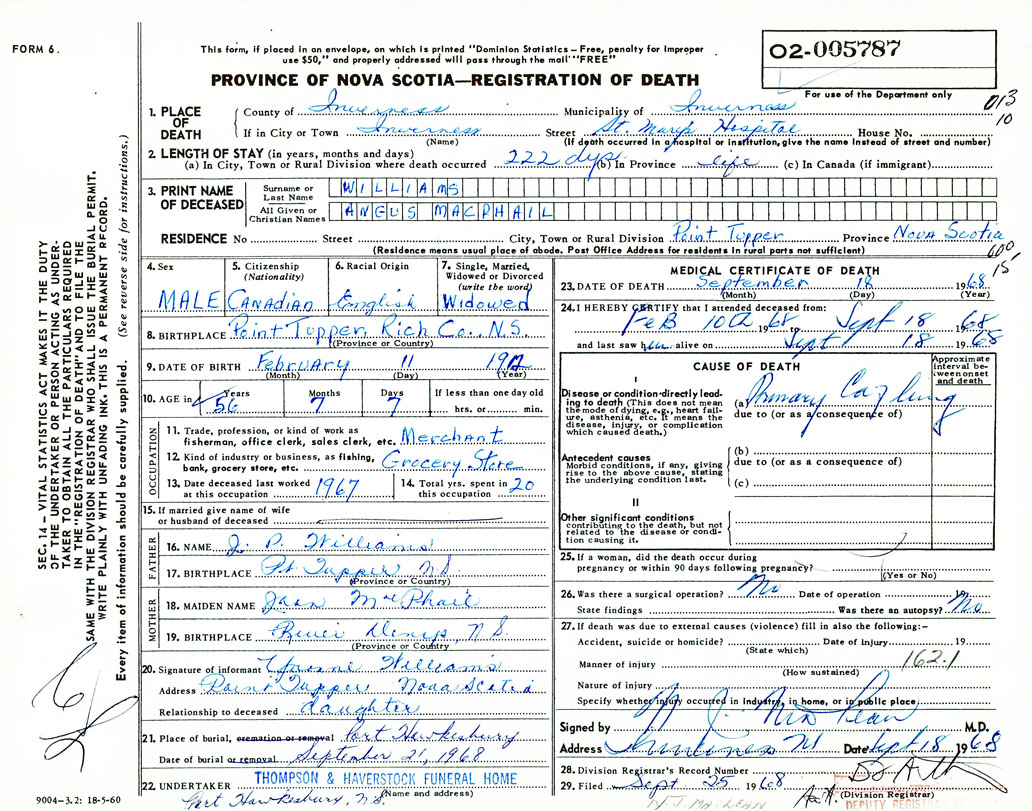 FORM 6.
This form, if placed in an envelope, on which is printed "Dominion Statistics – Free, penalty for improper
use $50," and properly addressed will pass through the mail "FREE"
PROVINCE OF NOVA SCOTIA—REGISTRATION OF DEATH
O2-005787
For use of the Department only
013
10
1. PLACE OF DEATH County of Inverness Municipality of Inverness
If in City or Town Inverness (Name) Street St. Mary's Hospital House No.
(If death occurred in a hospital or institution, give the name instead of street and number)
2. LENGTH OF STAY (in years, months and days)
(a) In City, Town or Rural Division where death occurred 222 dys. (b) In Province Life (c) In Canada (if immigrant)
3. PRINT NAME OF DECEASED Surname or Last Name WILLIAMS
All Given or Christian Names ANGUS MACPHAIL
RESIDENCE No Street City, Town or Rural Division Point Tupper Province Nova Scotia
(Residence means usual place of abode. Post Office Address for residents in rural parts not sufficient)
600
15
4. Sex MALE
5. Citizenship (Nationality) Canadian
6. Racial Origin English
7. Single, Married, Widowed or Divorced (write the word) Widowed
8. BIRTHPLACE Point Tupper Rich Co. N.S.
(Province or Country)
9. DATE OF BIRTH February 11 1912
(Month) (Day) (Year)
10. AGE in Years 56 Months 7 Days 7 If less than one day old hrs. or min.
OCCUPATION
11. Trade, profession, or kind of work as fisherman, office clerk, sales clerk, etc. Merchant
12. Kind of industry or business, as fishing, bank, grocery store, etc. Grocery Store
13. Date deceased last worked at this occupation 1967
14. Total yrs. spent in this occupation 20
15. If married give name of wife or husband of deceased
FATHER
16. NAME J. P. Williams
17. BIRTHPLACE Pt Tupper N.S.
(Province or Country)
MOTHER
18. MAIDEN NAME MacPhail
19. BIRTHPLACE River Denys, N.S.
(Province or Country
20. Signature of informant Yvonne Williams
Address Point Tupper Nova Scotia
Relationship to deceased daughter
21. Place of burial, cremation or removal Port Hawkesbury
Date of burial or removal September 21, 1968
22. UNDERTAKER THOMPSON & HAVERSTOCK FUNERAL HOME
Port Hawkesbury, N.S.
(Name and address)
9004–3.2: 18-5-60
MEDICAL CERTIFICATE OF DEATH
23. DATE OF DEATH September 18 1968
(Month) (Day) (Year)
24. I HEREBY CERTIFY that I attended deceased from:
Feb 10th 1968 to Sept 18 1968
and last saw him alive on Sept 18 1968
CAUSE OF DEATH
Approximate interval between onset and death
I
Disease or condition directly leading to death (This does not mean the mode of dying, e.g., heart failure, asthenia, etc. It means the disease, injury, or complication which caused death.)
(a) Primary Ca of lung
due to (or as a consequence of)
Antecedent causes
Morbid conditions, if any, giving rise to the above cause, stating the underlying condition last.
(b)
due to (or as a consequence of)
(c)
II
Other significant conditions
contributing to the death, but not related to the disease or condition causing it.
25. If a woman, did the death occur during pregnancy or within 90 days following pregnancy?
(Yes or No)
26. Was there a surgical operation? No Date of operation 19
State findings Was there an autopsy? No
27. If death was due to external causes (violence) fill in also the following:–
Accident, suicide or homicide? Date of injury 19
(State which)
Manner of injury 162.1
(How sustained)
Nature of injury
Specify whether injury occurred in industry, in home, or in public place
Signed by N. J. MacLean M.D.
Address Inverness NS Date Sept 18 1968
28. Division Registrar's Record Number
29. Filed Sept 25 1968
(Division Registrar)
DEPUTY REGISTRAR
N. J. MacLEAN
SEC. 14 – VITAL STATISTICS ACT MAKES IT THE DUTY
OF THE UNDERTAKER OR PERSON ACTING AS UNDER-
TAKER TO OBTAIN ALL THE PARTICULARS REQUIRED
IN THE "REGISTRATION OF DEATH" AND TO FILE THE
SAME WITH THE DIVISION REGISTRAR WHO SHALL ISSUE THE BURIAL PERMIT.
WRITE PLAINLY WITH UNFADING INK. THIS IS A PERMANENT RECORD.
Every item of information should be carefully supplied. (See reverse side for instructions.)